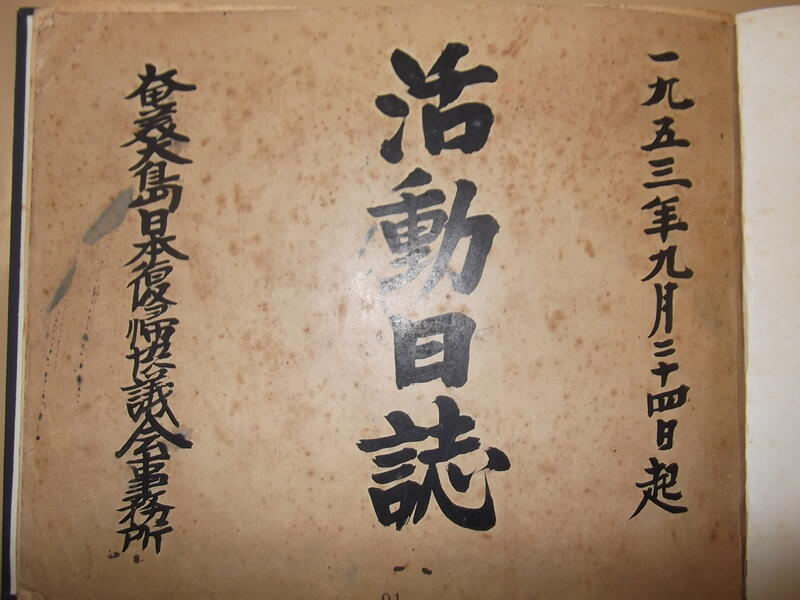 一九五三年九月二十四日起
活動日誌
奄美大島日本復帰協議会事務所